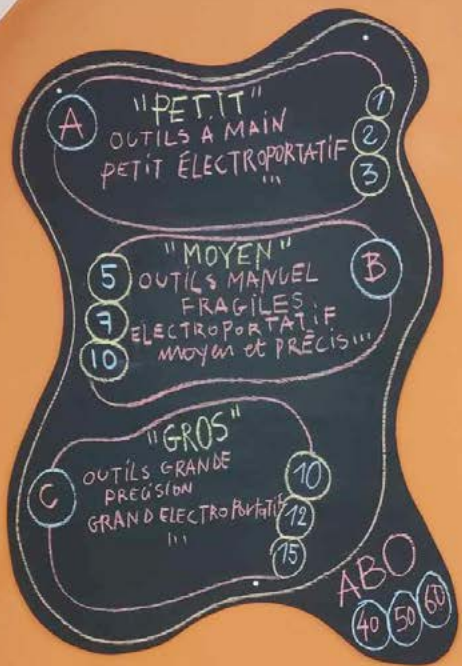 A
"PETIT"
OUTILS À MAIN
PETIT ÉLECTROPORTATIF
...
1
2
3
"MOYEN"
OUTILS MANUEL
FRAGILES
ELECTROPORTATIF
moyen et PRÉCIS...
B
5
7
10
C
"GROS"
OUTILS GRANDE
PRECISION
GRAND ELECTROPORTATIF
...
10
12
15
ABO
40 50 60